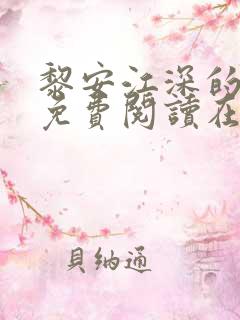 黎安江深的
免費閱讀在
貝納通